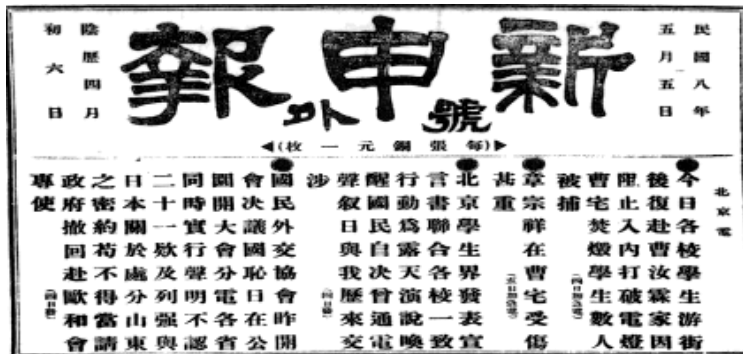 民國八年
五月五日
新申報
號外
(每張銅元一枚)
陰歷四月
初六日
北京電
●今日各校學生游街
後復赴曹汝霖家因
阻止入內打破電燈
曹宅焚燬學生數人
被捕(四日加急電)
●章宗祥在曹宅受傷
甚重(五日加急電)
●北京學生界發表宣
言書聯合各校一致
行動爲露天演說喚
醒國民自決曾通電
聲叙日民與我歷來交
涉(四日發)
●國民外交協會昨開
會決議國恥日在公
園開大會分電各省
同時實行聲明不認
二十一欵及列强與
日本關於處分山東
之密約苟不得當請
政府撤回赴歐和會
專使(四日發)